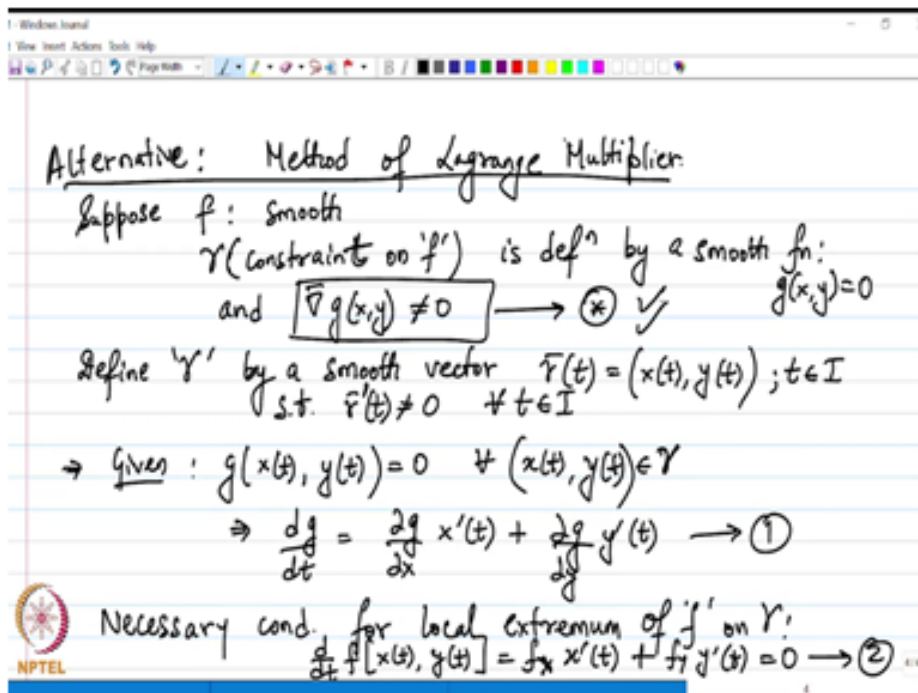 - Windows Journal
View Insert Actions Tools Help
Page Width
B I
Alternative: Method of Lagrange Multiplier.
Suppose f: smooth
γ(constraint on 'f') is defⁿ by a smooth fn:
g(x,y)=0
and ∇̄ g(x,y) ≠ 0 → ⊛ ✓
Define 'γ' by a smooth vector r̄(t) = (x(t), y(t)) ; t∈I
s.t. r̄'(t) ≠ 0 ∀ t∈I
⇒ Given : g(x(t), y(t)) = 0 ∀ (x(t), y(t)) ∈ γ
⇒ dg/dt = ∂g/∂x x'(t) + ∂g/∂y y'(t) → ①
Necessary cond. for local extremum of 'f' on γ:
d/dt f[x(t), y(t)] = fx x'(t) + fy y'(t) = 0 → ②
NPTEL